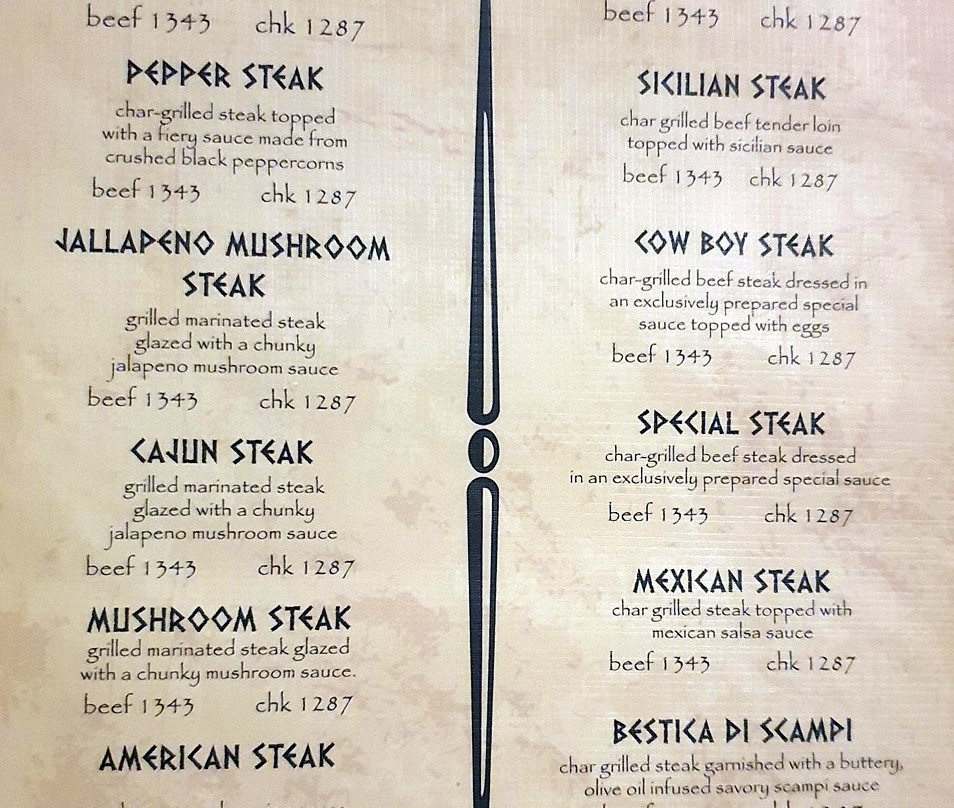 beef 1343 chk 1287
PEPPER STEAK
char-grilled steak topped
with a fiery sauce made from
crushed black peppercorns
beef 1343 chk 1287
JALLAPENO MUSHROOM
STEAK
grilled marinated steak
glazed with a chunky
jalapeno mushroom sauce
beef 1343 chk 1287
CAJUN STEAK
grilled marinated steak
glazed with a chunky
jalapeno mushroom sauce
beef 1343 chk 1287
MUSHROOM STEAK
grilled marinated steak glazed
with a chunky mushroom sauce.
beef 1343 chk 1287
AMERICAN STEAK
beef 1343 chk 1287
SICILIAN STEAK
char grilled beef tender loin
topped with sicilian sauce
beef 1343 chk 1287
COW BOY STEAK
char-grilled beef steak dressed in
an exclusively prepared special
sauce topped with eggs
beef 1343 chk 1287
SPECIAL STEAK
char-grilled beef steak dressed
in an exclusively prepared special sauce
beef 1343 chk 1287
MEXICAN STEAK
char grilled steak topped with
mexican salsa sauce
beef 1343 chk 1287
BESTICA DI SCAMPI
char grilled steak garnished with a buttery,
olive oil infused savory scampi sauce